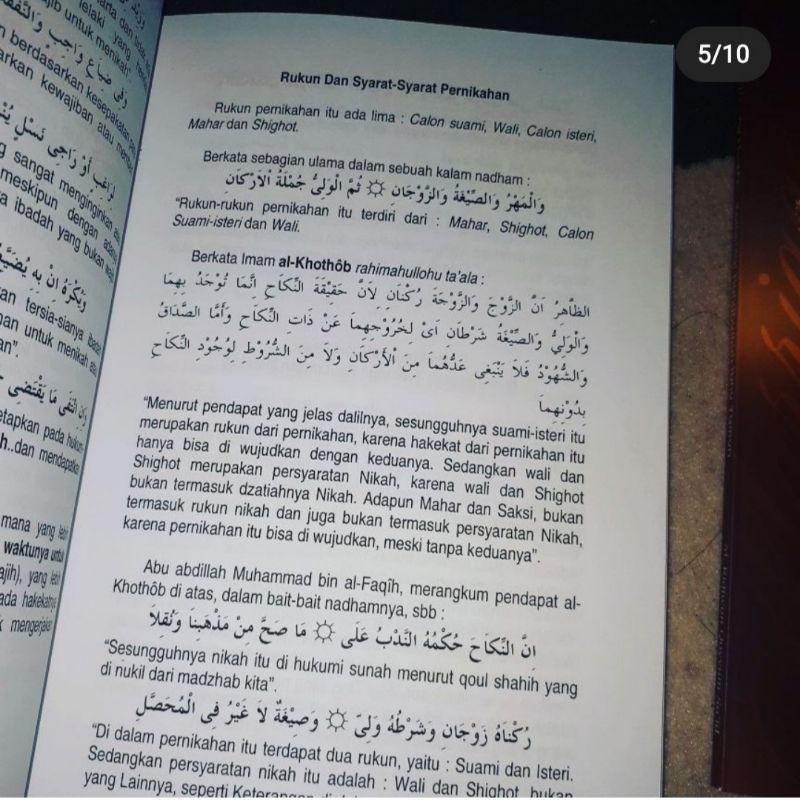 5/10
untuk menikah"
lelaki yang
وَفِى ضِيَاعِ وَاجِبٍ
berdasarkan kesepakatan
kewajiban atau
sangat menginginkan
meskipun dengan
ibadah yang bukan
tersia-sianya
untuk menikah
an".
pada hukum
dan mendapatkan
mana yang
waktunya untuk
yang
ada hakekatnya
mengerjakan
Rukun Dan Syarat-Syarat Pernikahan
Rukun pernikahan itu ada lima : Calon suami, Wali, Calon isteri,
Mahar dan Shighot.
Berkata sebagian ulama dalam sebuah kalam nadham :
وَالْمَهْرُ وَالصِّيْغَةُ وَالزَّوْجَانِ ۞ ثُمَّ الْوَلِىُّ جُمْلَةُ الْاَرْكَانِ
"Rukun-rukun pernikahan itu terdiri dari : Mahar, Shighot, Calon
Suami-isteri dan Wali.
Berkata Imam al-Khothôb rahimahullohu ta'ala :
الظَّاهِرُ اَنَّ الزَّوْجَ وَالزَّوْجَةَ رُكْنَانِ لِاَنَّ حَقِيْقَةَ النِّكَاحِ اِنَّمَا تُوْجَدُ بِهِمَا
وَالْوَلِىُّ وَالصِّيْغَةُ شَرْطَانِ اَىْ لِخُرُوْجِهِمَا عَنْ ذَاتِ النِّكَاحِ وَأَمَّا الصَّدَاقُ
وَالشُّهُوْدُ فَلاَ يَنْبَغِى عَدُّهُمَا مِنَ الْأَرْكَانِ وَلاَ مِنَ الشُّرُوْطِ لِوُجُوْدِ النِّكَاحِ
بِدُوْنِهِمَا
"Menurut pendapat yang jelas dalilnya, sesungguhnya suami-isteri itu
merupakan rukun dari pernikahan, karena hakekat dari pernikahan itu
hanya bisa di wujudkan dengan keduanya. Sedangkan wali dan
Shighot merupakan persyaratan Nikah, karena wali dan Shighot
bukan termasuk dzatiahnya Nikah. Adapun Mahar dan Saksi, bukan
termasuk rukun nikah dan juga bukan termasuk persyaratan Nikah,
karena pernikahan itu bisa di wujudkan, meski tanpa keduanya".
Abu abdillah Muhammad bin al-Faqîh, merangkum pendapat al-
Khothôb di atas, dalam bait-bait nadhamnya, sbb :
اِنَّ النِّكَاحَ حُكْمُهُ النَّدْبُ عَلَى ۞ مَا صَحَّ مِنْ مَذْهَبِنَا وَنُقِلاَ
"Sesungguhnya nikah itu di hukumi sunah menurut qoul shahih yang
di nukil dari madzhab kita".
رُكْنَاهُ زَوْجَانِ وَشَرْطُهُ وَلِىّ ۞ وَصِيْغَةٌ لاَ غَيْرُ فِى الْمُحَصَّلِ
"Di dalam pernikahan itu terdapat dua rukun, yaitu : Suami dan Isteri.
Sedangkan persyaratan nikah itu adalah : Wali dan Shighot, bukan
yang Lainnya, seperti Keterangan